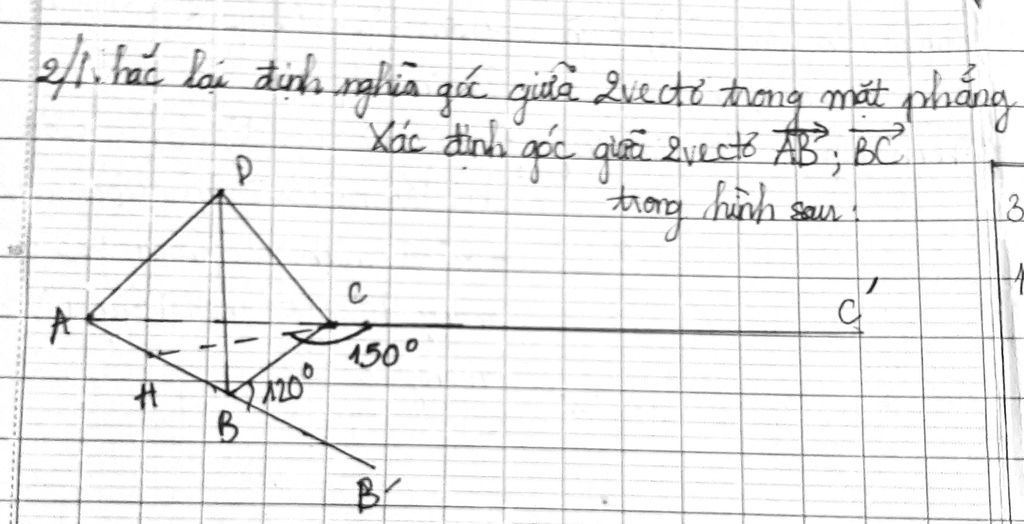 2/1. hắc lại định nghĩa góc giữa 2 vectơ trong mặt phẳng
Xác định góc giữa 2 vectơ AB; BC
trong hình sau:
3
1
D
C
C'
A
150°
120°
H
B
B'